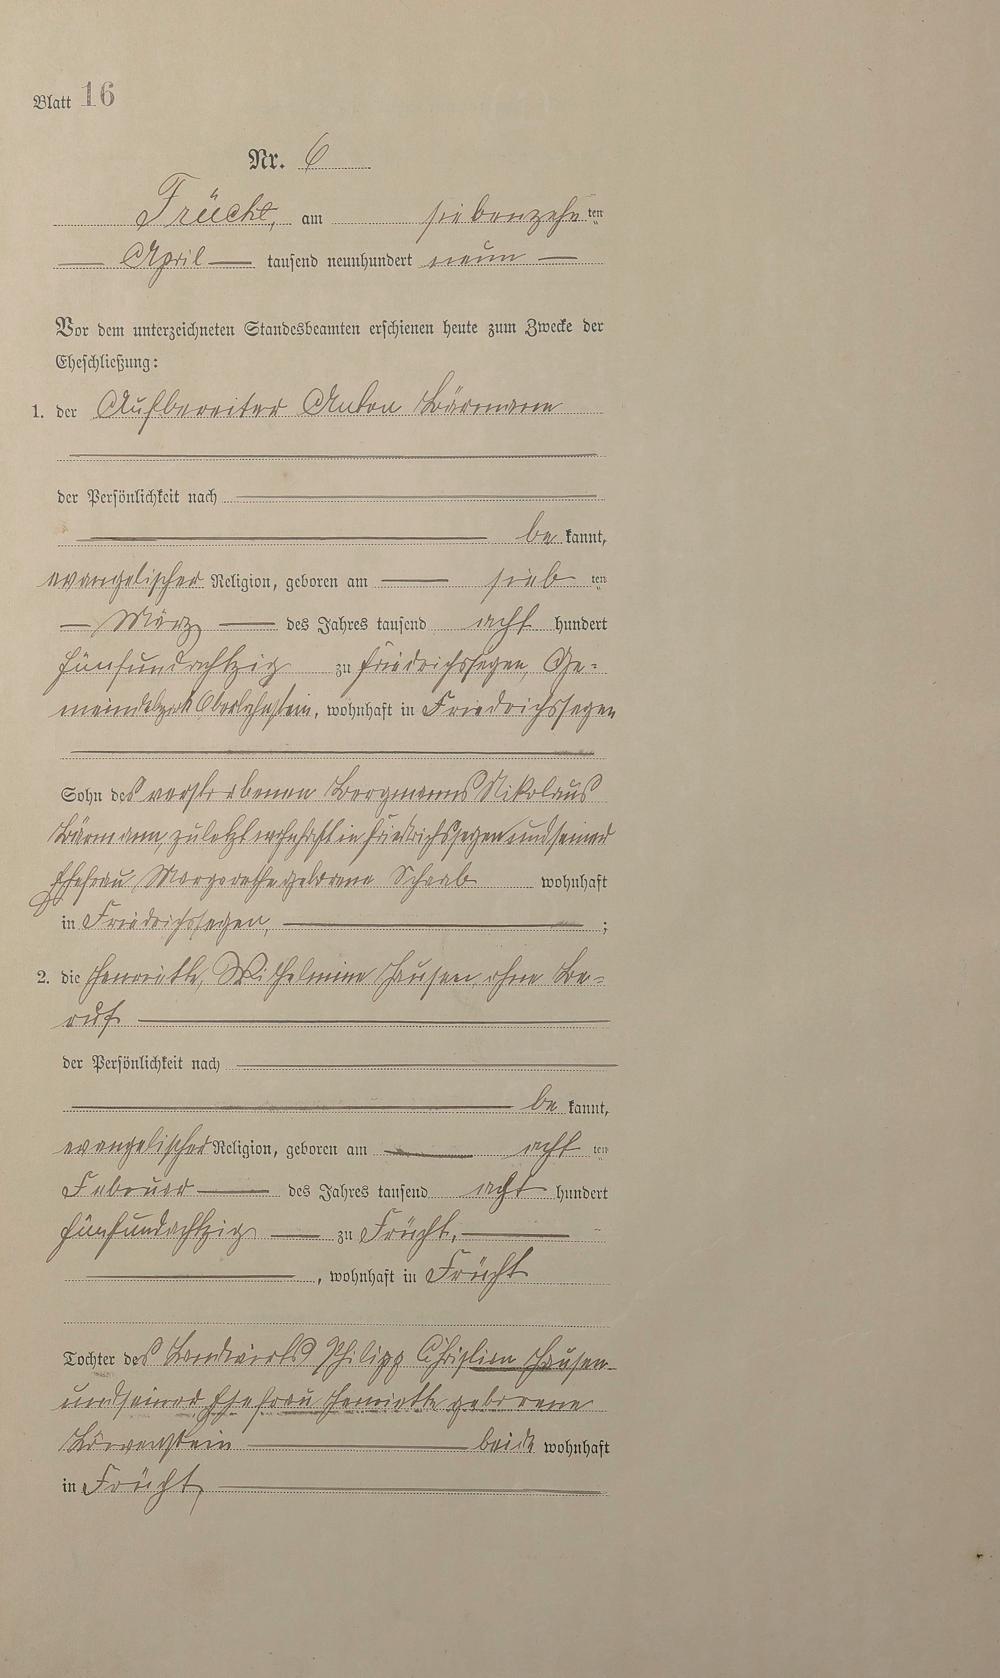 Blatt 16
Nr. 6
Frücht, am siebenzehn ten
April tausend neunhundert neun
Vor dem unterzeichneten Standesbeamten erschienen heute zum Zwecke der
Eheschließung:
1. der Aufbereiter Anton Bärmann
der Persönlichkeit nach
be kannt,
evangelischer Religion, geboren am sieb ten
März des Jahres tausend acht hundert
fünfundachtzig zu Friedrichssegen, Ge-
meindebezirk Oberlahnstein, wohnhaft in Friedrichssegen
Sohn des verstorbenen Bergmanns Nikolaus
Bärmann, zuletzt wohnhaft in Friedrichssegen und seiner
Ehefrau Margarethe geborene Schaab wohnhaft
in Friedrichssegen, ;
2. die Henriette, Wilhelmine Hausen, ohne Be-
ruf
der Persönlichkeit nach
be kannt,
evangelischer Religion, geboren am acht ten
Februar des Jahres tausend acht hundert
fünfundachtzig zu Frücht,
, wohnhaft in Frücht
Tochter des Landwirts Philipp Christian Hausen
und seiner Ehefrau Henriette geborene
Löwenstein beide wohnhaft
in Frücht,